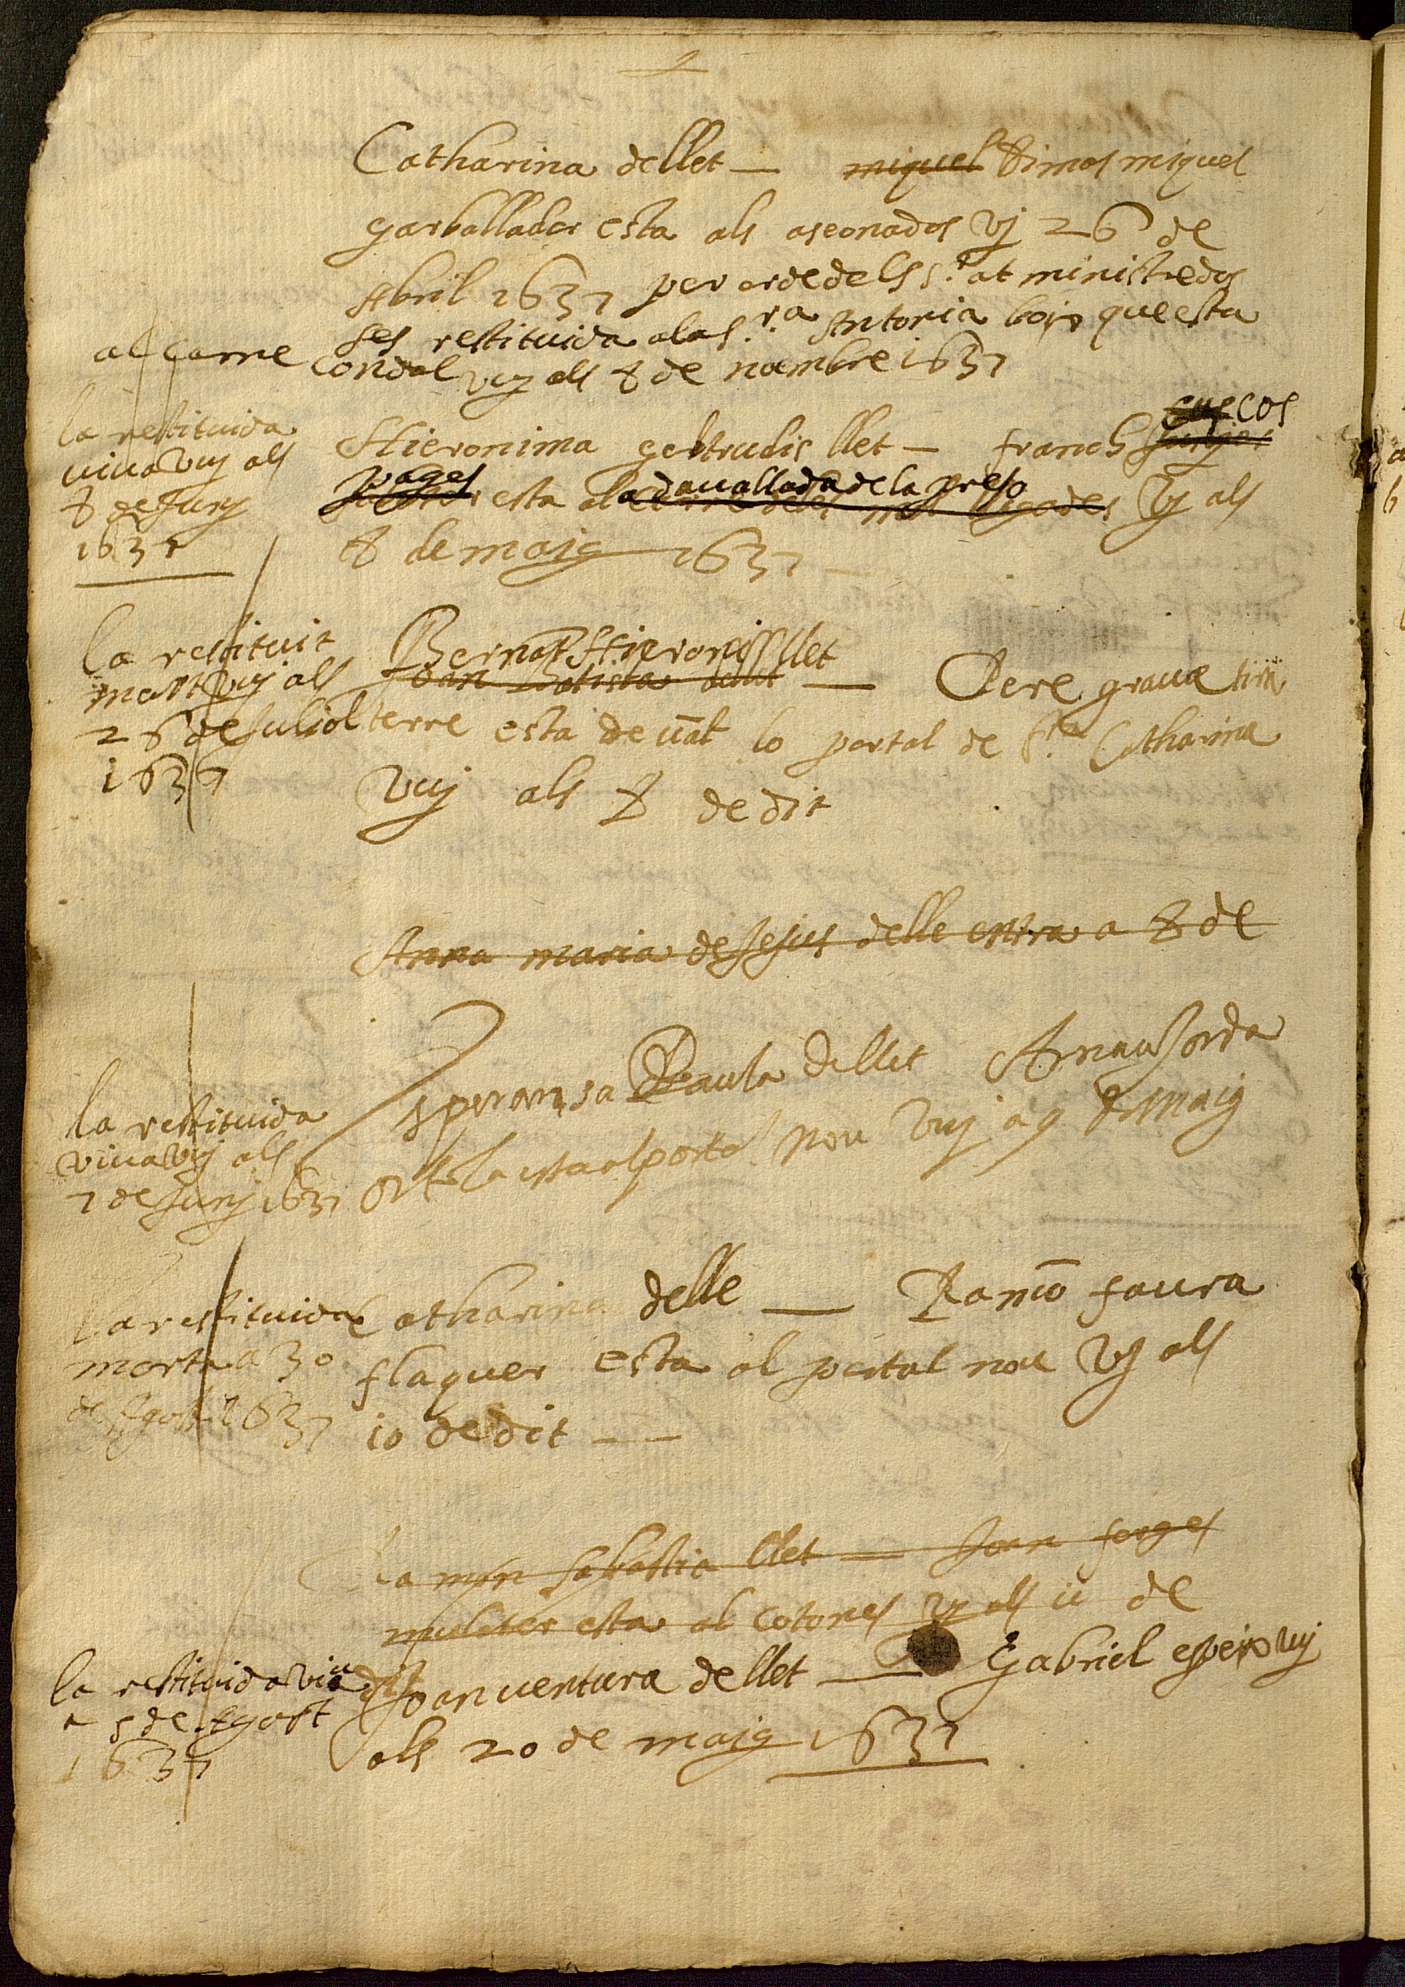 Catharina dellet — miquel Dimas miquel
garballador esta als aseonados vj 26 de
Abril 1637 per orde dels s.rs atministredos
ses restituida ala s.ra Antonia boix que esta
al carre condal vuy als 8 de noembre 1637
la restituida
viua vuy als
8 de Juny
1637
Hieronima geltrudis llet — franch cuscos
pages esta a la dauallada de la preso vj als
8 de maig 1637
la restituit
mort vuy als
26 de Juliol
1637
Bernat Hieroni llet
Joan Batista dellet — Pere graua tira
terre esta deuāt lo portal de s.ta Catharina
vuy als 8 de dit
Anna maria de Jesus delle entra a 8 de
la restituida
viua vuy als
7 de Juny 1637
Speransa Paula dellet Arnau Jorda
ortola esta al portal nou vuy a 9 de maig
la restituida
morta a 30
de Agost 1637
Catharina delle — Ramō faura
flaquer esta al portal nou vj als
10 de dit — —
Ramon Sabastia llet — Joan forges
mulater esta al cotones vj als 11 de
dit
la restituida viua
a 5 de Agost
1637
Joan uentura dellet — Gabriel espeio vuj
als 20 de maig 1637